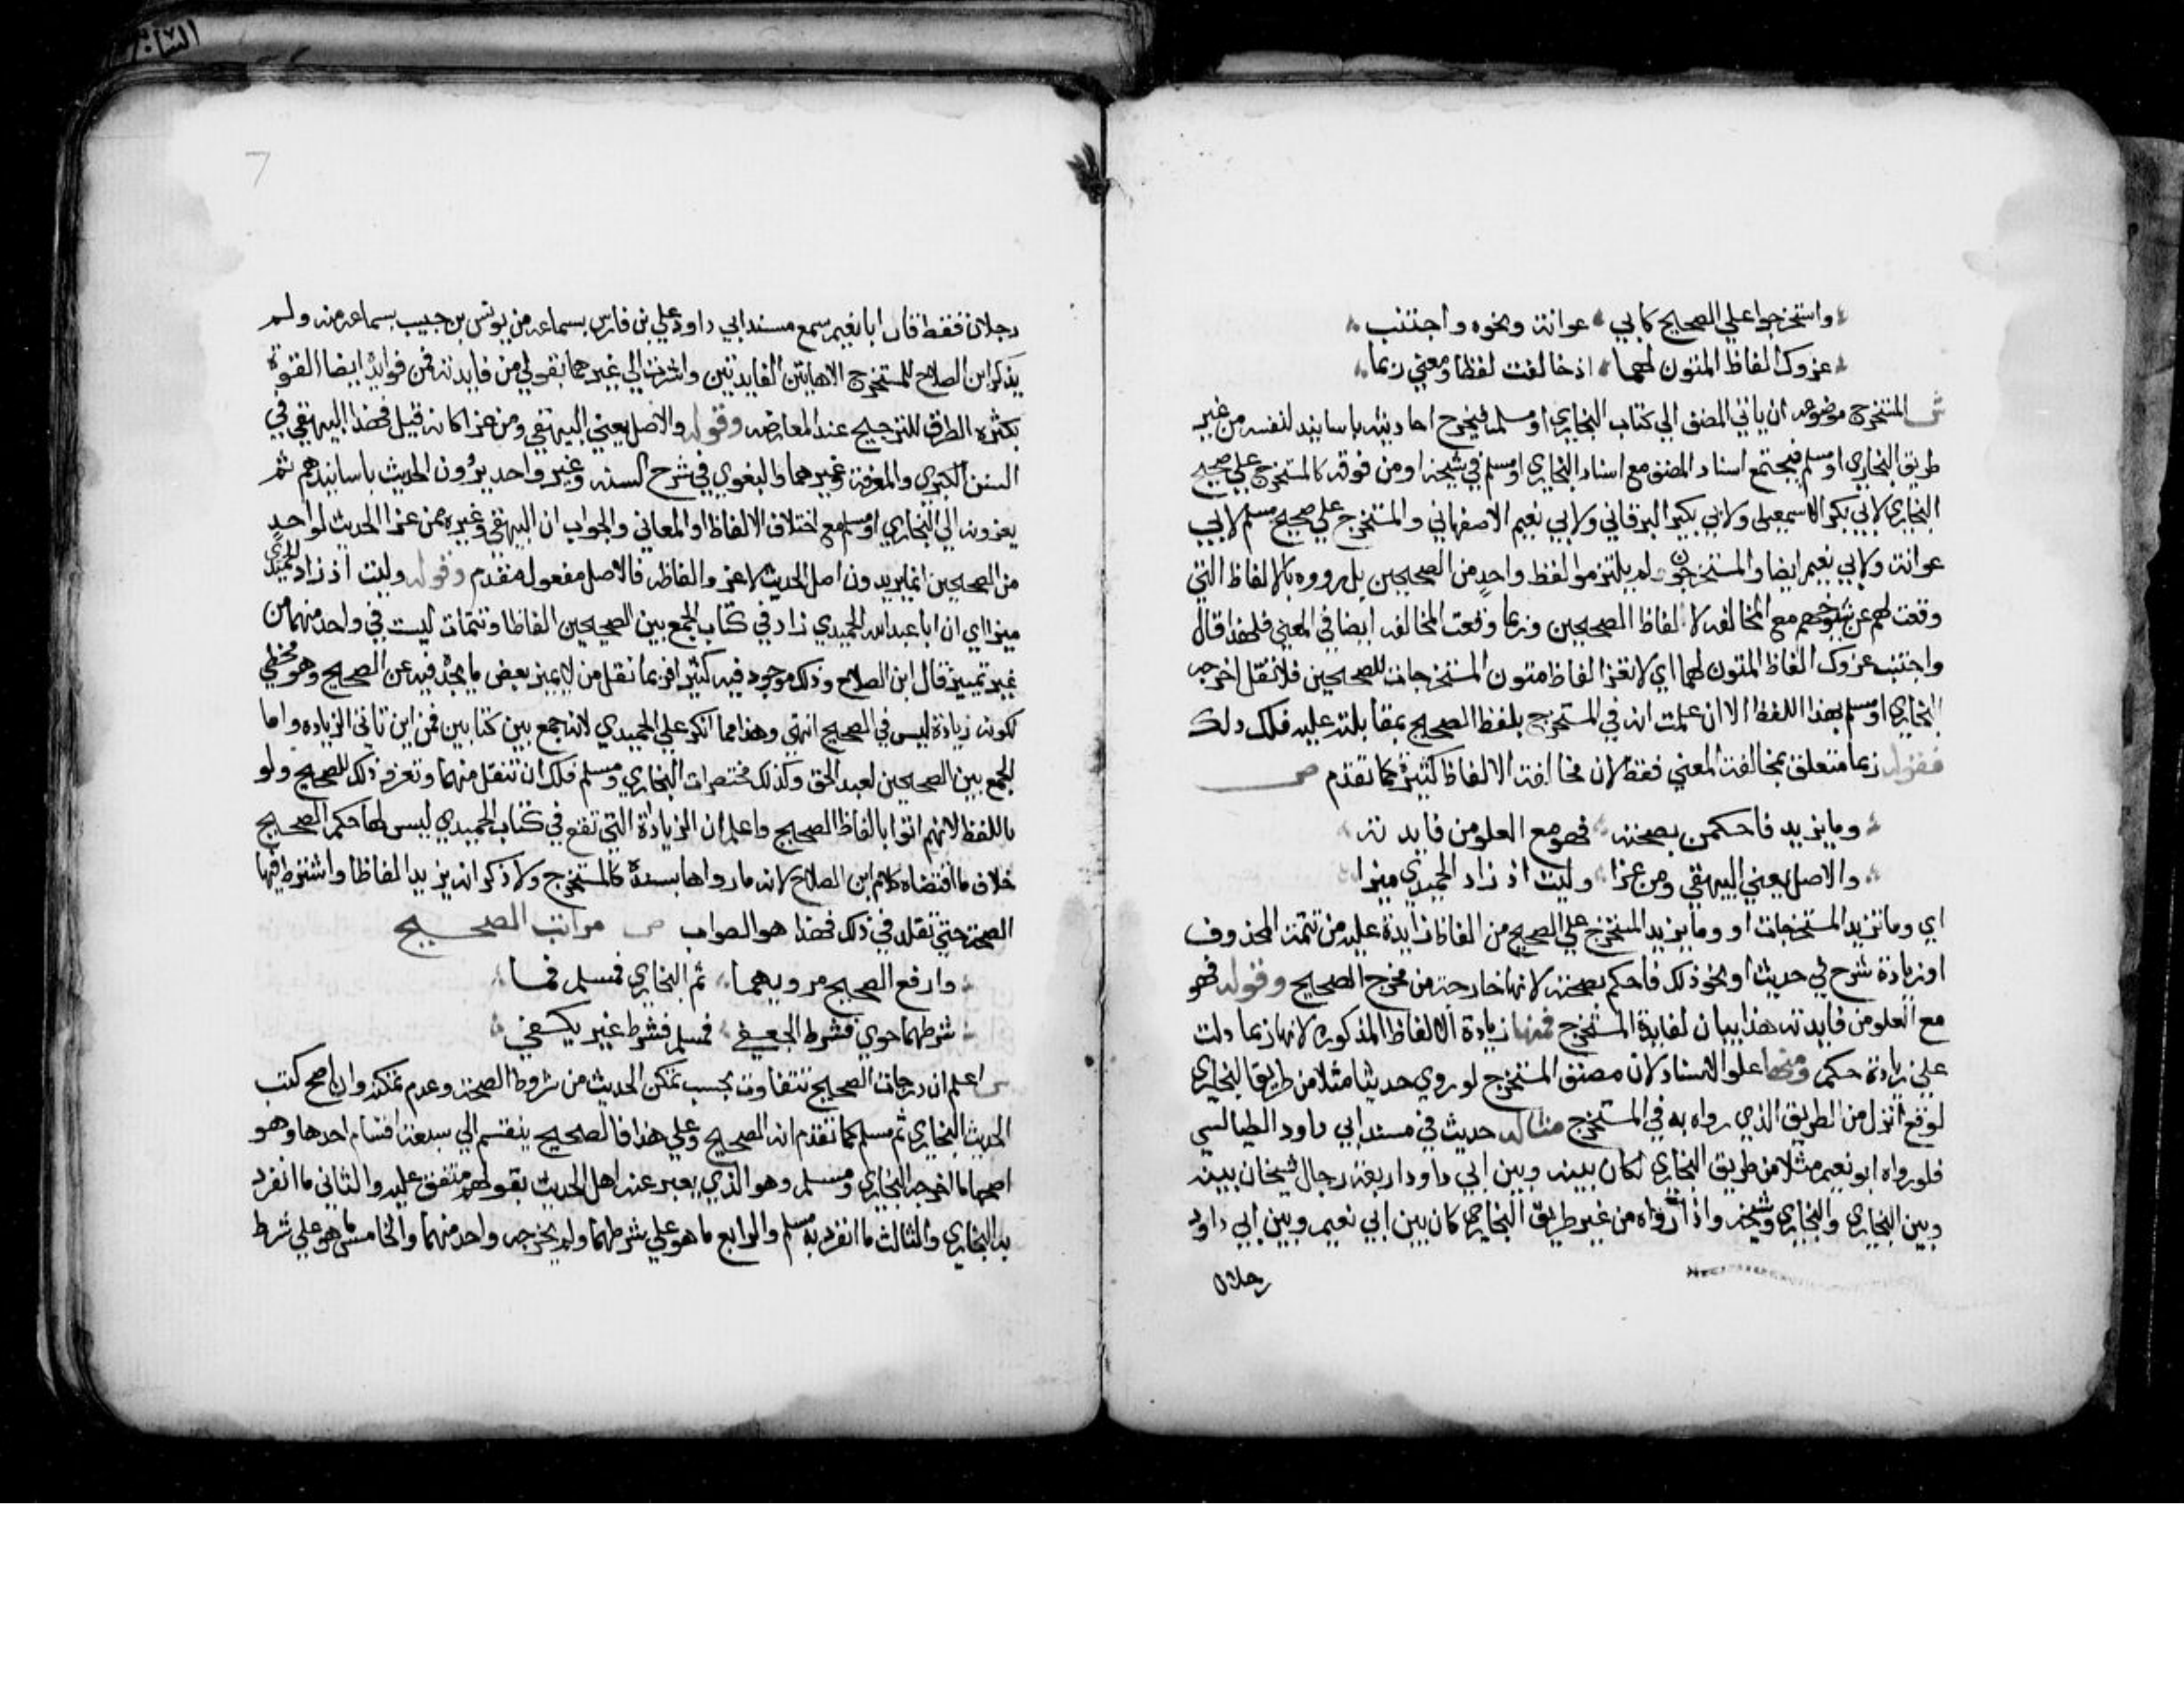 واستخرجوا علي الصحيح كابي عوانة ونحوه واجتنب
عزوك الفاظ المتون لهما اذ خالفت لفظا ومعني ربما
ش المستخرج موضوعه ان ياتي المصنف الي كتاب البخاري او مسلم فيخرج احاديثه باسانيد لنفسه من غير
طريق البخاري او مسلم فيجتمع اسناد المصنف مع اسناد البخاري او مسلم في شيخه او من فوقه كالمستخرج علي صحيح
البخاري لابي بكر الاسمعيلي ولابي بكر البرقاني ولابي نعيم الاصفهاني والمستخرج علي صحيح مسلم لابي
عوانة ولابي نعيم ايضا والمستخرجون لم يلتزموا لفظ واحد من الصحيحين بل رووه بالالفاظ التي
وقعت لهم عن شيوخهم مع المخالفه لالفاظ الصحيحين وربما وقعت المخالفه ايضا في المعني فلهذا قال
واجتنب عزوك الفاظ المتون لهما اي لا تعز الفاظ متون المستخرجات للصحيحين فلا تقل اخرجه
البخاري او مسلم بهذا اللفظ الا ان علمت انه في المستخرج بلفظ الصحيح بمقابلته عليه فلك ذلك
فقوله ربما متعلق بمخالفة المعني فقط لان مخالفة الالفاظ كثيرة كما تقدم ص
وما يزيد فاحكمن بصحته فهو مع العلو من فايدته
والاصل يعني البيهقي ومن عزا وليت اذ زاد الحميدي ميزا
اي وما تزيد المستخرجات او وما يزيد المستخرج علي الصحيح من الفاظ زايدة عليه من تتمة المحذوف
او زيادة شرح في حديث او نحو ذلك فاحكم بصحته لانها خارجة من مخرج الصحيح وقوله فهو
مع العلو من فايدته هذا بيان لفايدة المستخرج فمنها زيادة الالفاظ المذكوره لانها ربما دلت
علي زيادة حكم ومنها علو الاسناد لان مصنف المستخرج لو روي حديثا مثلا من طريق البخاري
لوقع انزل من الطريق الذي رواه به في المستخرج مثاله حديث في مسند ابي داود الطيالسي
فلو رواه ابو نعيم مثلا من طريق البخاري لكان بينه وبين ابي داود اربعة رجال شيخان بينه
وبين البخاري والبخاري وشيخه واذا رواه من غير طريق البخاري كان بين ابي نعيم وبين ابي داود
رجلان
7
رجلان فقط فان ابا نعيم سمع مسند ابي داود علي بن فارس بسماعه من يونس بن حبيب بسماعه منه ولم
يذكر ابن الصلاح للمستخرج الا هاتين الفايدتين واشرت الي غيرهما بقولي من فايدته فمن فوايده ايضا القوة
بكثرة الطرق للترجيح عند المعارضه وقوله والاصل يعني البيهقي ومن عزا كانه قيل فهذا البيهقي في
السنن الكبري والمعرفة وغيرهما والبغوي في شرح السنه وغير واحد يروون الحديث باسانيدهم ثم
يعزونه الي البخاري او مسلم مع اختلاف الالفاظ او المعاني والجواب ان البيهقي وغيره ممن عزا الحديث لواحد
من الصحيحين انما يريدون اصل الحديث لا عزو الفاظه فالاصل مفعول مقدم وقوله وليت اذ زاد الحميدي
ميزا اي ان ابا عبد الله الحميدي زاد في كتاب الجمع بين الصحيحين الفاظا وتتمات ليست في واحد منهما من
غير تمييز قال ابن الصلاح وذلك موجود فيه كثيرا فربما نقل من لا يميز بعض ما يجده فيه عن الصحيح وهو مخطي
لكونه زيادة ليس في الصحيح انتهي وهذا مما انكر علي الحميدي لانه جمع بين كتابين فمن اين تاتي الزياده واما
الجمع بين الصحيحين لعبد الحق وكذلك مختصرات البخاري ومسلم فلك ان تنقل منها وتعزو ذلك للصحيح ولو
باللفظ لانهم اتوا بالفاظ الصحيح واعلم ان الزيادة التي تقع في كتاب الحميدي ليس لها حكم الصحيح
خلاف ما اقتضاه كلام ابن الصلاح لانه ما رواها بسنده كالمستخرج ولا ذكر انه يزيد الفاظا واشترط فيها
الصحة حتي نقلد في ذلك فهذا هو الصواب ص مراتب الصحيح
وارفع الصحيح مرويهما ثم البخاري فمسلم فما
شرطهما حوي فشرط الجعفي فمسلم فشرط غير يكفي
ش اعلم ان درجات الصحيح تتفاوت بحسب تمكن الحديث من شروط الصحة وعدم تمكنه وان اصح كتب
الحديث البخاري ثم مسلم كما تقدم انه الصحيح وعلي هذا فالصحيح ينقسم الي سبعة اقسام احدها وهو
اصحها ما اخرجه البخاري ومسلم وهو الذي يعبر عنه اهل الحديث بقولهم متفق عليه والثاني ما انفرد
به البخاري والثالث ما انفرد به مسلم والرابع ما هو علي شرطهما ولم يخرجه واحد منهما والخامس ما هو علي شرط